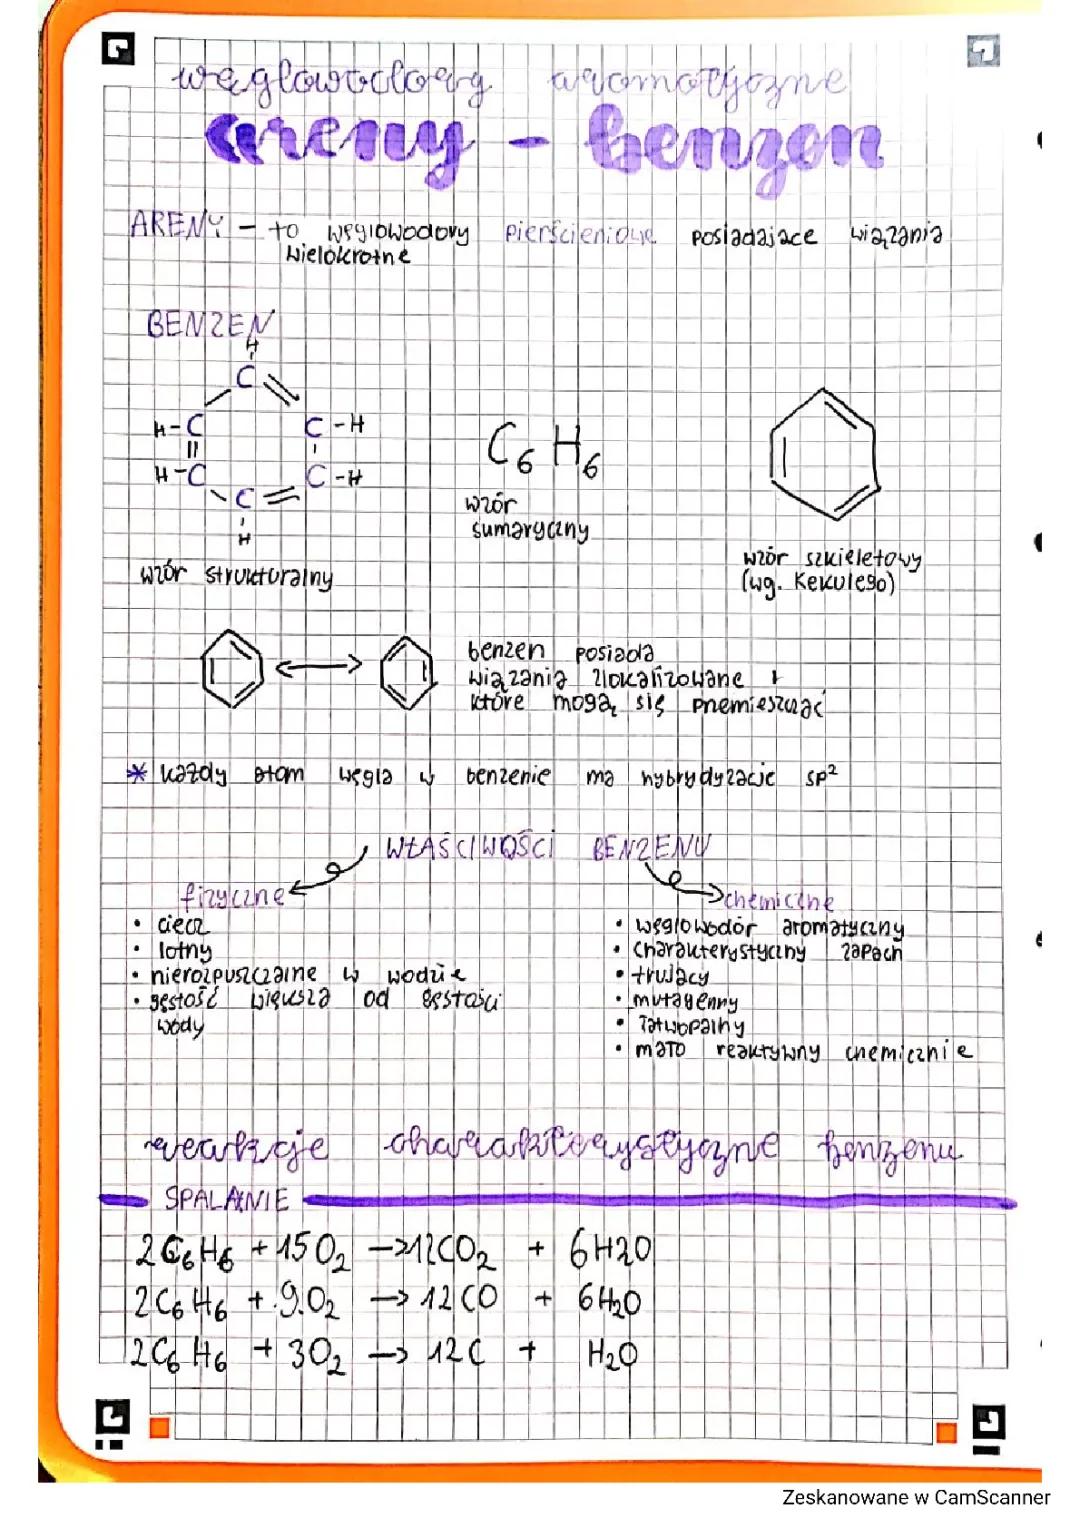 węglowodory aromatyczne
areny - benzen
ARENY - to węglowodory pierścieniowe posiadające wiązania
wielokrotne
BENZEN
H
C
H-C C-H
H-C C-H
C
H
C6H6
wzór
sumaryczny
wzór strukturalny
wzór szkieletowy
(wg. Kekulego)
benzen posiada
wiązania zlokalizowane
które mogą się przemieszczać
* każdy atom węgla w benzenie ma hybrydyzację sp²
WŁAŚCIWOŚCI BENZENU
fizyczne
• ciecz
• lotny
• nierozpuszczalne w wodzie
• gęstość większa od gęstości
wody
chemiczne
• węglowodór aromatyczny
• charakterystyczny zapach
• trujący
• mutagenny
• łatwopalny
• mało reaktywny chemicznie
reakcje charakterystyczne benzenu
SPALANIE
2C6H6 + 15O2 → 12CO2 + 6H2O
2C6H6 + 9O2 → 12CO + 6H2O
2C6H6 + 3O2 → 12C + H2O
Zeskanowane w CamScanner